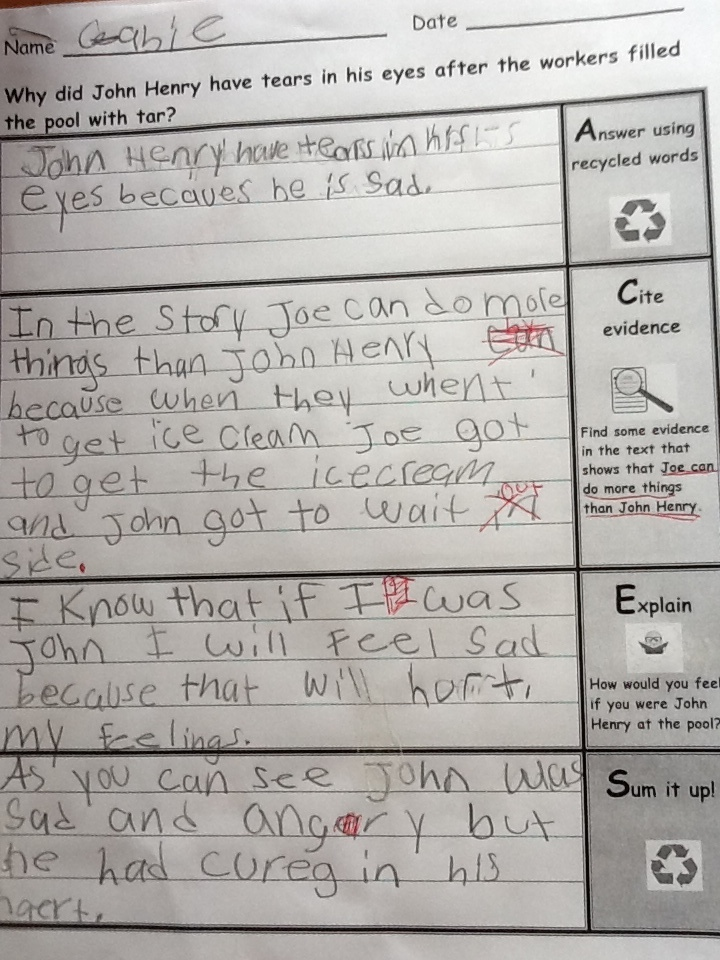 Name Gabie Date
Why did John Henry have tears in his eyes after the workers filled
the pool with tar?
John Henry have tears in his
eyes becaues he is Sad.
Answer using
recycled words
In the Story Joe can do more
things than John Henry
because when they whent
to get ice cleam Joe got
to get the icecream
and John got to wait out
side.
Cite
evidence
Find some evidence
in the text that
shows that Joe can
do more things
than John Henry.
I Know that if I was
John I will Feel Sad
because that will hort
my Feelings.
Explain
How would you feel
if you were John
Henry at the pool?
As you can see John was
Sad and angry but
he had cureg in his
haert.
Sum it up!